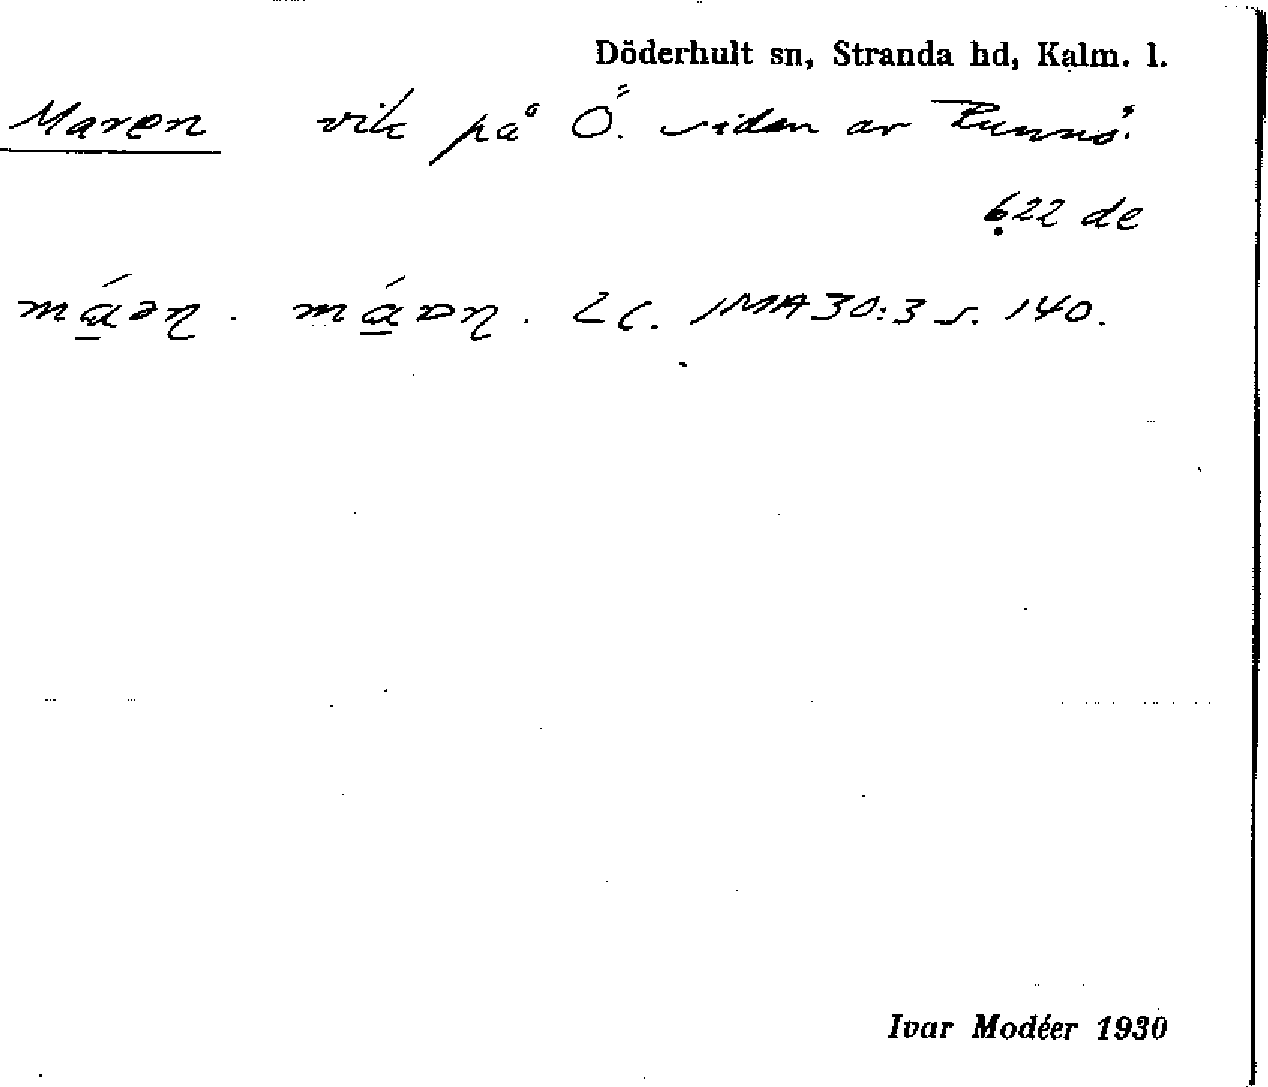 Döderhult sn, Stranda hd, Kalm. l.
Maren vik på Ö. sidan av Runnö.
622 de
má̱əɳ . má̱ɒɳ . LC. IMA30:3 s. 140.
Ivar Modéer 1930